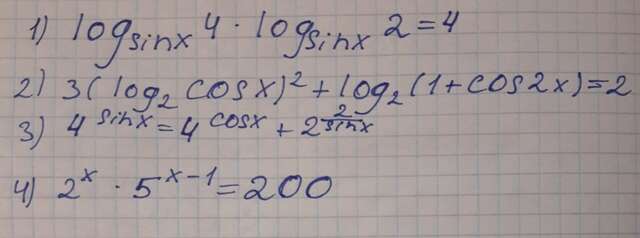 1) log_{sinx} 4 · log_{sinx} 2 = 4
2) 3(log₂ cosx)² + log₂(1+cos2x) = 2
3) 4^{sinx} = 4^{cosx} + 2^{\frac{2}{sinx}}
4) 2^x · 5^{x-1} = 200